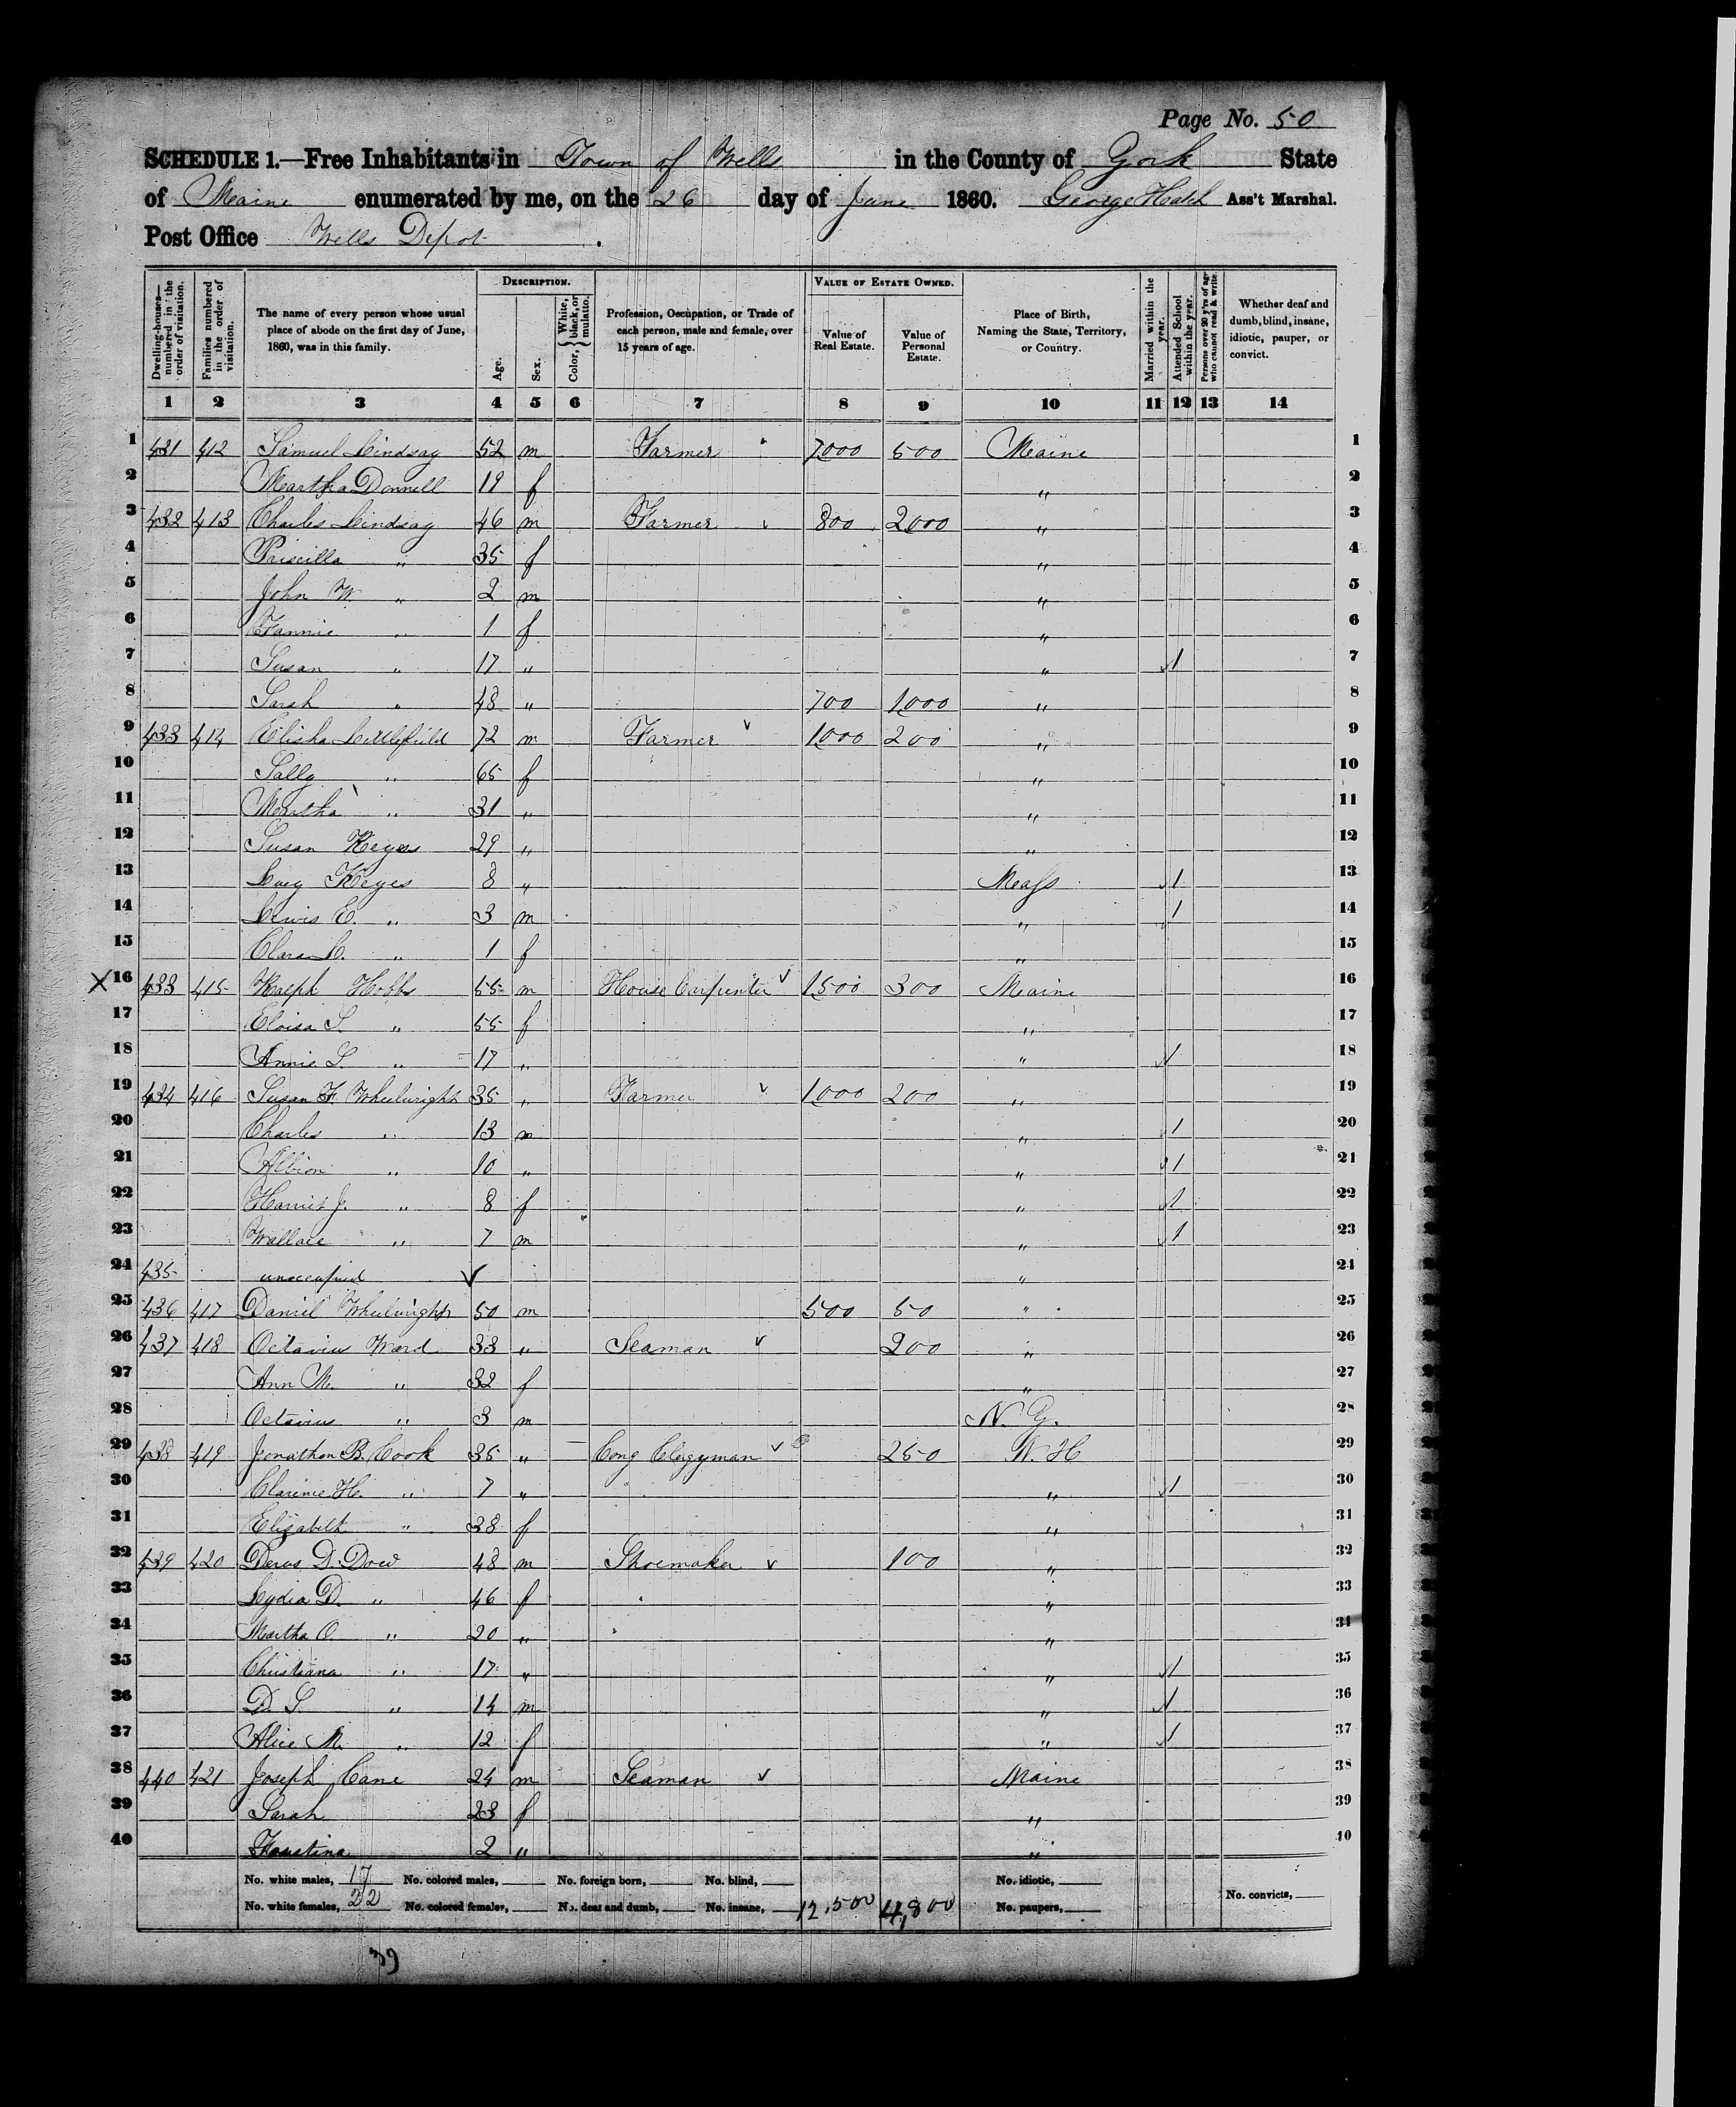 Page No. 50
SCHEDULE 1.—Free Inhabitants in Town of Wells in the County of York State
of Maine enumerated by me, on the 26 day of June 1860. George Hatch Ass't Marshal.
Post Office Wells Depot.
Dwelling-houses—numbered in the order of visitation.
Families numbered in the order of visitation.
The name of every person whose usual place of abode on the first day of June, 1860, was in this family.
DESCRIPTION.
Age.
Sex.
Color, { White, black, or mulatto.
Profession, Occupation, or Trade of each person, male and female, over 15 years of age.
VALUE OF ESTATE OWNED.
Value of Real Estate.
Value of Personal Estate.
Place of Birth, Naming the State, Territory, or Country.
Married within the year.
Attended School within the year.
Persons over 20 y'rs of age who cannot read & write.
Whether deaf and dumb, blind, insane, idiotic, pauper, or convict.
1 2 3 4 5 6 7 8 9 10 11 12 13 14
1 431 412 Samuel Lindsay 52 m Farmer 7000 500 Maine 1
2 Martha Donnell 19 f " 2
3 432 413 Charles Lindsay 46 m Farmer 800 2000 " 3
4 Priscilla " 35 f " 4
5 John W. " 2 m " 5
6 Fannie " 1 f " 6
7 Susan " 17 " " 1 7
8 Sarah " 48 " 700 1000 " 8
9 433 414 Elisha Littlefield 72 m Farmer 1000 200 " 9
10 Sally " 65 f " 10
11 Martha " 31 " " 11
12 Susan Keyes 29 " " 12
13 Lucy Keyes 8 " Mass 1 13
14 Lewis E. " 3 m " 1 14
15 Clara L. " 1 f " 15
X 16 433 415 Ralph Hobbs 55 m House Carpenter 1500 300 Maine 16
17 Eloisa S. " 55 f " 17
18 Annie L. " 17 " " 1 18
19 434 416 Susan F. Wheelwright 35 " Farmer 1000 200 " 19
20 Charles " 13 m " 1 20
21 Albion " 10 " " 1 21
22 Harriet J. " 8 f " 1 22
23 Wallace " 7 m " 1 23
24 435 unoccupied " 24
25 436 417 Daniel Wheelwright 50 m 500 50 " 25
26 437 418 Octavius Ward 33 " Seaman 200 " 26
27 Ann M. " 32 f " 27
28 Octavius " 3 m N. Y. 28
29 438 419 Jonathan B. Cook 35 " Cong Clergyman 250 N. H 29
30 Clarince H. " 7 " " 1 30
31 Elizabeth " 38 f " 31
32 439 420 D. Dow 48 m Shoemaker 100 " 32
33 Lydia D. " 46 f " 33
34 Martha O. " 20 " " 34
35 Christiana " 17 " " 1 35
36 D. S. " 14 m " 1 36
37 Alice M. " 12 f " 1 37
38 440 421 Joseph Cane 24 m Seaman Maine 38
39 Sarah 23 f " 39
40 Faustina 2 " " 40
No. white males, 17 No. colored males, No. foreign born, No. blind, No. idiotic,
No. white females, 22 No. colored females, No. deaf and dumb, No. insane, 12,500 4,800 No. paupers, No. convicts,
39